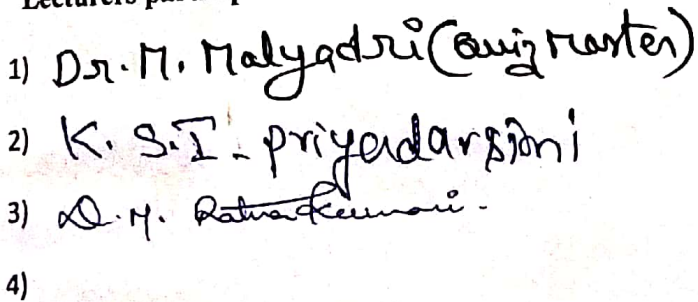 Lecturers
1) Dr. M. Malyadri (Quiz Master)
2) K. S. I. Priyadarsini
3) D. M. Ratna Kumari.
4)